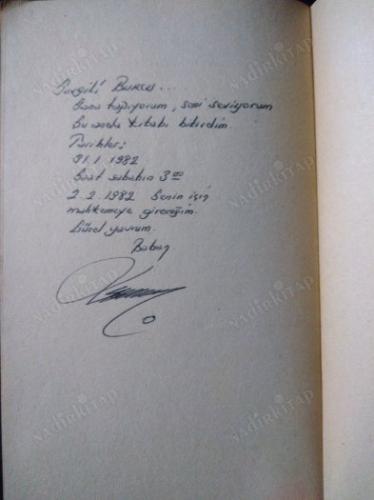 Sevgili Burcu...
Sana tapıyorum, seni seviyorum
Bu arada kitabı bitirdim.
Tarihler:
31.1.1982
Saat sabahın 3⁰⁰
2.2.1982 Senin için
mahkemeye gireceğim.
Güzel yavrum.
Baban
NADİRKİTAP